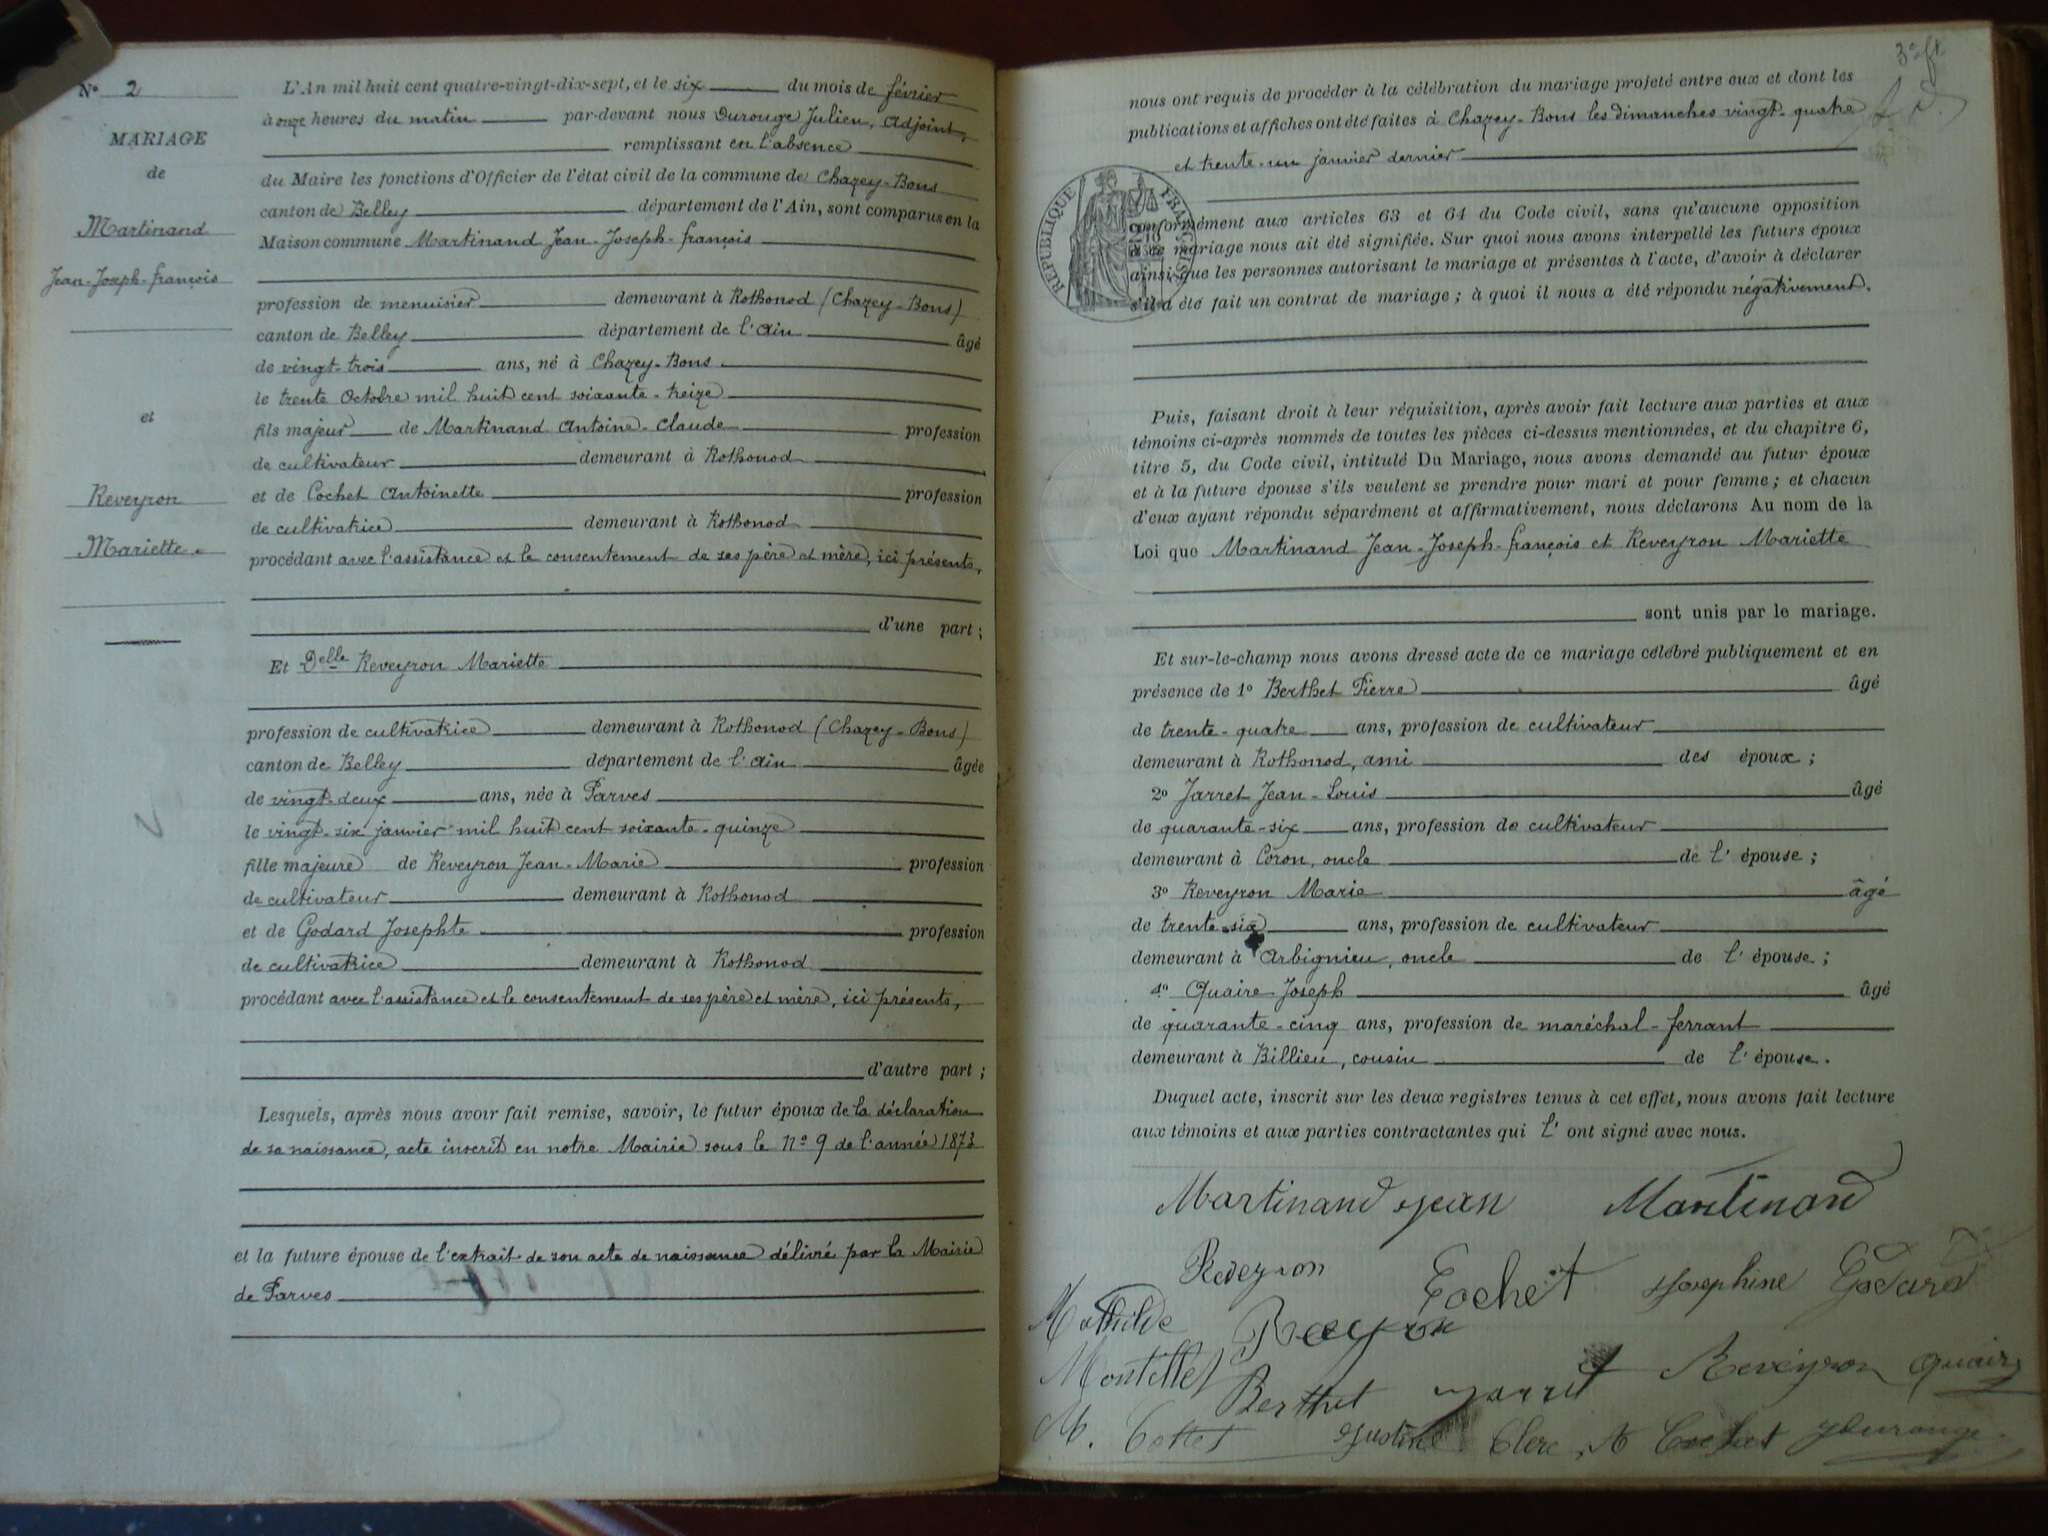 N° 2
MARIAGE
de
Martinand
Jean-Joseph-françois
et
Reveyron
Mariette.
L'An mil huit cent quatre-vingt-dix-sept, et le six du mois de février
à onze heures du matin par-devant nous Durouge Julien, Adjoint,
remplissant en l'absence
du Maire les fonctions d'Officier de l'état civil de la commune de Chazey-Bons
canton de Belley département de l'Ain, sont comparus en la
Maison commune Martinand Jean-Joseph-françois
profession de menuisier demeurant à Rothonod (Chazey-Bons)
canton de Belley département de l'Ain âgé
de vingt-trois ans, né à Chazey-Bons
le trente Octobre mil huit cent soixante-treize
fils majeur de Martinand Antoine-Claude profession
de cultivateur demeurant à Rothonod
et de Cochet Antoinette profession
de cultivatrice demeurant à Rothonod
procédant avec l'assistance et le consentement de ses père et mère, ici présents,
d'une part ;
Et Delle Reveyron Mariette
profession de cultivatrice demeurant à Rothonod (Chazey-Bons)
canton de Belley département de l'Ain âgée
de vingt-deux ans, née à Parves
le vingt-six janvier mil huit cent soixante-quinze
fille majeure de Reveyron Jean-Marie profession
de cultivateur demeurant à Rothonod
et de Godard Josephte profession
de cultivatrice demeurant à Rothonod
procédant avec l'assistance et le consentement de ses père et mère, ici présents,
d'autre part ;
Lesquels, après nous avoir fait remise, savoir, le futur époux de la déclaration
de sa naissance, acte inscrit en notre Mairie sous le N° 9 de l'année 1873
et la future épouse de l'extrait de son acte de naissance délivré par la Mairie
de Parves
nous ont requis de procéder à la célébration du mariage projeté entre eux et dont les
publications et affiches ont été faites à Chazey-Bons les dimanches vingt-quatre
et trente-un janvier dernier
RÉPUBLIQUE FRANÇAISE
conformément aux articles 63 et 64 du Code civil, sans qu'aucune opposition
à ce mariage nous ait été signifiée. Sur quoi nous avons interpellé les futurs époux
ainsi que les personnes autorisant le mariage et présentes à l'acte, d'avoir à déclarer
s'il a été fait un contrat de mariage ; à quoi il nous a été répondu négativement.
Puis, faisant droit à leur réquisition, après avoir fait lecture aux parties et aux
témoins ci-après nommés de toutes les pièces ci-dessus mentionnées, et du chapitre 6,
titre 5, du Code civil, intitulé Du Mariage, nous avons demandé au futur époux
et à la future épouse s'ils veulent se prendre pour mari et pour femme ; et chacun
d'eux ayant répondu séparément et affirmativement, nous déclarons Au nom de la
Loi que Martinand Jean-Joseph-françois et Reveyron Mariette
sont unis par le mariage.
Et sur-le-champ nous avons dressé acte de ce mariage célébré publiquement et en
présence de 1° Berthet Pierre âgé
de trente-quatre ans, profession de cultivateur
demeurant à Rothonod, ami des époux ;
2° Jarret Jean-Louis âgé
de quarante-six ans, profession de cultivateur
demeurant à Coron, oncle de l'épouse ;
3° Reveyron Marie âgé
de trente-six ans, profession de cultivateur
demeurant à Arbignieu, oncle de l'épouse ;
4° Quaire Joseph âgé
de quarante-cinq ans, profession de maréchal-ferrant
demeurant à Billieu, cousin de l'épouse.
Duquel acte, inscrit sur les deux registres tenus à cet effet, nous avons fait lecture
aux témoins et aux parties contractantes qui l'ont signé avec nous.
Martinand Jean Martinand
Reveyron Cochet Josephine Godard
Mathilde
Montillet Berthet Jarret Reveyron Quaire
M. Justine Clerc A Cochet JDurouge